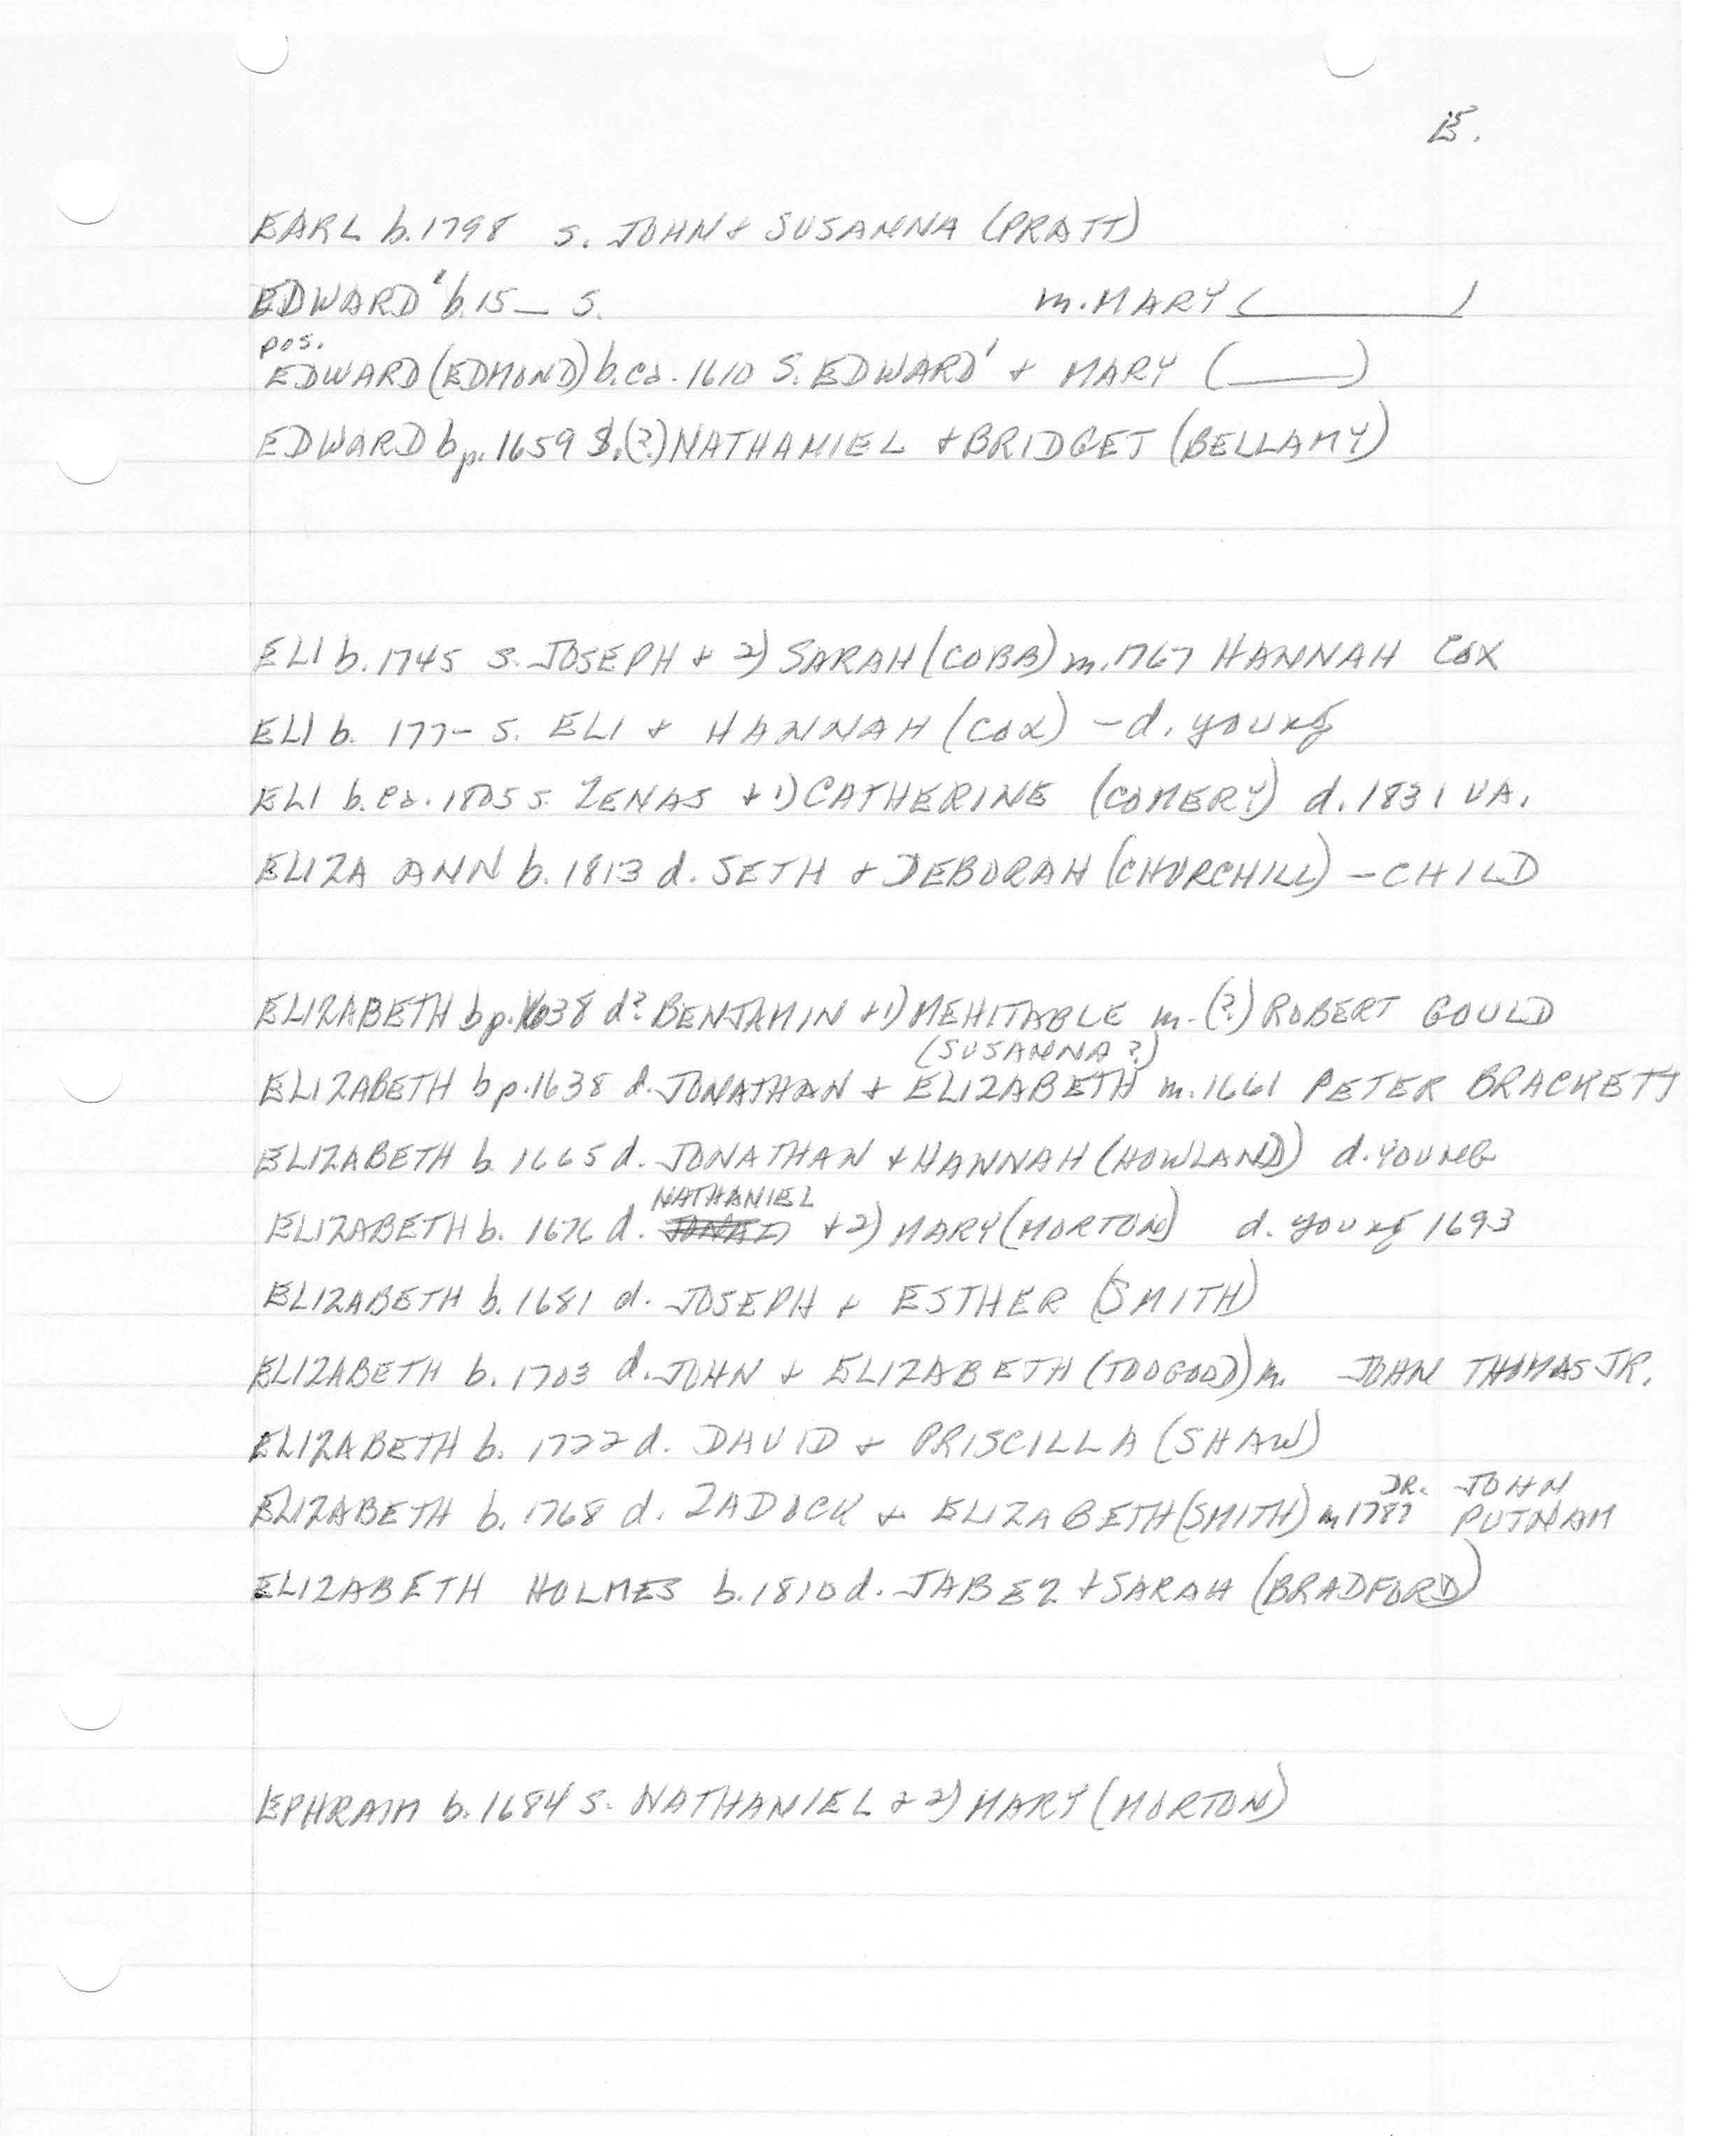 E.
EARL b. 1798 s. JOHN + SUSANNA (PRATT)
EDWARD' b. 15_ s. m. MARY (______)
pos.
EDWARD (EDMOND) b. ca. 1610 S. EDWARD' + MARY (____)
EDWARD bp. 1659 S. (?) NATHANIEL + BRIDGET (BELLAMY)
ELI b. 1745 s. JOSEPH + 2) SARAH (COBB) m. 1767 HANNAH COX
ELI b. 177- s. ELI + HANNAH (COX) - d. young
ELI b. ca. 1805 s. ZENAS + 1) CATHERINE (COMERY) d. 1831 VA.
ELIZA ANN b. 1813 d. SETH + DEBORAH (CHURCHILL) - CHILD
ELIZABETH bp. 1638 d? BENJAMIN + 1) MEHITABLE m. (?) ROBERT GOULD
(SUSANNA?)
ELIZABETH bp. 1638 d. JONATHAN + ELIZABETH m. 1661 PETER BRACKETT
ELIZABETH b. 1665 d. JONATHAN + HANNAH (HOWLAND) d. YOUNG
NATHANIEL
ELIZABETH b. 1676 d. + 2) MARY (MORTON) d. young 1693
ELIZABETH b. 1681 d. JOSEPH + ESTHER (SMITH)
ELIZABETH b. 1703 d. JOHN + ELIZABETH (TOOGOOD) m. JOHN THOMAS JR.
ELIZABETH b. 1722 d. DAVID + PRISCILLA (SHAW)
DR. JOHN
ELIZABETH b. 1768 d. ZADOCK + ELIZABETH (SMITH) m 1787 PUTNAM
ELIZABETH HOLMES b. 1810 d. JABEZ + SARAH (BRADFORD)
EPHRAIM b. 1684 s. NATHANIEL + 2) MARY (MORTON)